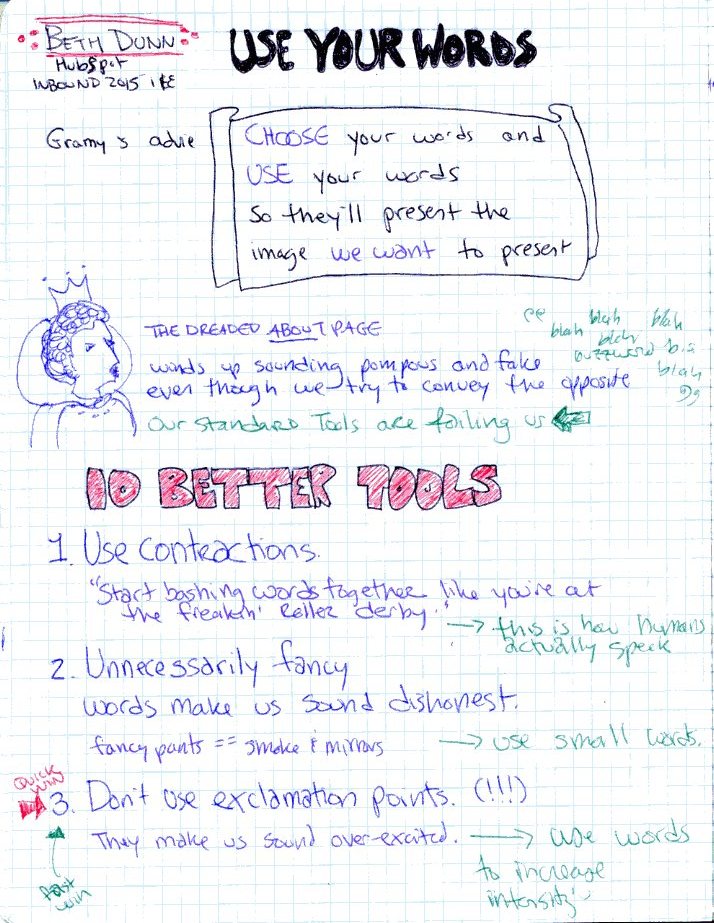 BETH DUNN
HubSpot
INBOUND 2015
USE YOUR WORDS
Gramy's advie
CHOOSE your words and
USE your words
So they'll present the
image we want to present
THE DREADED ABOUT PAGE
winds up sounding pompous and fake
even though we try to convey the opposite
Our standard Tools are failing us
blah blah blah
blah
buzzword
blah
10 BETTER TOOLS
1. Use contractions.
"Start bashing words together like you're at
the freakin' Roller derby."
→ this is how humans
actually speak
2. Unnecessarily fancy
words make us sound dishonest.
fancy pants == smoke & mirrors
→ use small words.
QUICK
WIN
3. Don't use exclamation points. (!!!)
They make us sound over-excited.
→ use words
to increase
intensity
fast
win